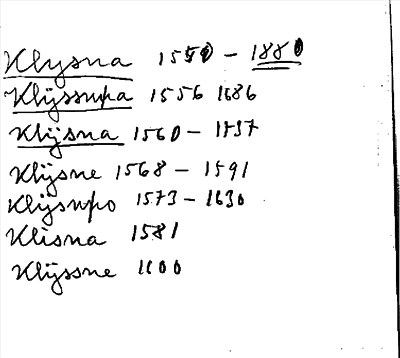 Klysna 1550 - 1880
Klÿssnpa 1556 1686
Klÿsna 1560 - 1737
Klÿsne 1568 - 1591
Klÿsnpo 1573 - 1630
Klisna 1581
Klÿssne 1600